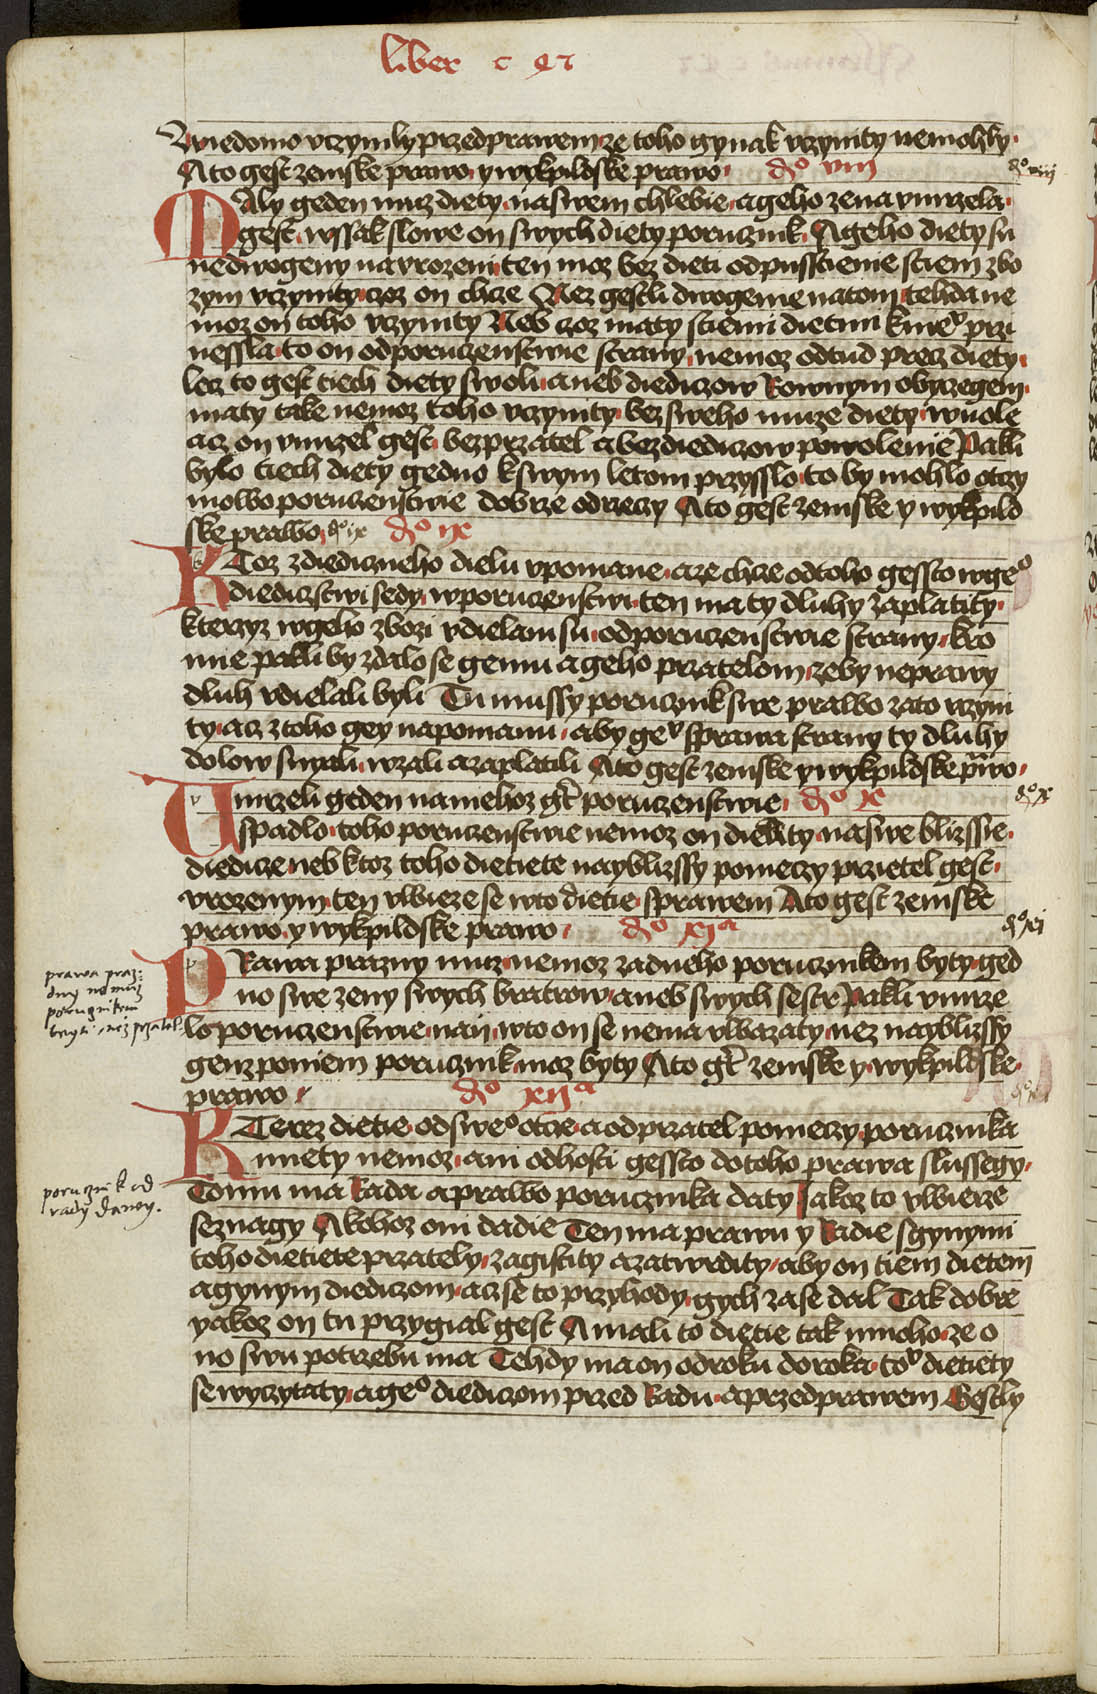 liber c
Wiedomo vczymly przed prawem ze toho gynak vczynity nemohly
A to gest zemske prawo y wykpildske prawo do viii
do viii
MAly geden muz diety na swem chlebie a geho zena vmrzela
gest wssak slowe on swych diety porucznik A geho diety su
nedwogeny na vrozeni ten moz bez dieti odpusstienie stiem zbo
zym vczynity czoz on chcze Nez gestli dwogenie na tom tehda ne
moz on toho vczynity Neb czoz maty stiemi dietmi k nie przi
nessla to on od poruczenstwie strany nemoz odtud precz diety
lecz to gest tiech diety swoli aneb diediczow Rownym obyczegem
maty take nemoz toho vczynity bez sweho muze diety wuole
acz on vmrzel gest bez przatel a bez diediczow powolenie Pakli
bylo tiech diety gedno k swym letom przysslo to by mohlo otczy
mo lbo poruczenstwie dobrze odrzeczy A to gest zemske y wykpild
ske prawo do ix do ix
KToz z diediczneho dielu vpomane a ze chcze od toho gessto w geo
diediczstwi sedy w poruczenstwi ten ma ty dluhy zaplatity
kterzyz w geho zbozi vdielani su od poruczenstwie strany kro
mie pakli by zdalo se gemu a geho przatelom ze by neprawy
dluh vdielali byli Tu mussy porucznik swe pralbo za to vczyni
ty acz z toho gey napomanu aby ge sprawa strany ty dluhy
dolow snyali wzali a zaplatili A to gest zemske y wykpildske prwo
Vmrzeli geden na nehoz gt poruczenstwie do x
do x
spadlo toho poruczenstwie nemoz on dielity na swe blizssie
diedicze neb ktoz toho dietiete nayblizssy pomeczy przietel gest
vrozenym ten vlbieze se w to dietie sprawem A to gest zemske
prawo y wykpildske prawo do xia
do xi
PRawa prazny muz nemoz zadneho porucznikem byty ged
no swe zeny swych bratrow aneb swych sestr Pakli vmrze
lo poruczenstwie nan w to on se nema vlbazaty nez nayblizssy
genz po niem porucznik moz byty A to gt zemske y wykpildske
prawo do xiia
prawa praz
dny nemuz
porucznikem
byti nez przatel
KTerez dietie od sweo otcze a od przatel pomeczy porucznika
mniety nemoz ani od hosti gessto do toho prawa slussegy
Tomu ma Rada a pralbo porucznika daty Jakoz to vlbierze
seznagy A kohoz oni dadie Ten ma prawu y Radie s gynymi
toho dietiete przately zagistity a zatwrdity aby on tiem dietem
a gynym diediczom acz se to przyhody gych zase dal Tak dobre
yakoz on tu przygial gest A mali to dietie tak mnoho ze o
no swu potrzebu ma Tehdy ma on od roku do roka to dietiety
se wyczytaty a geo diediczom przed Radu a przed prawem Gestly
porucznik od
rady dany.